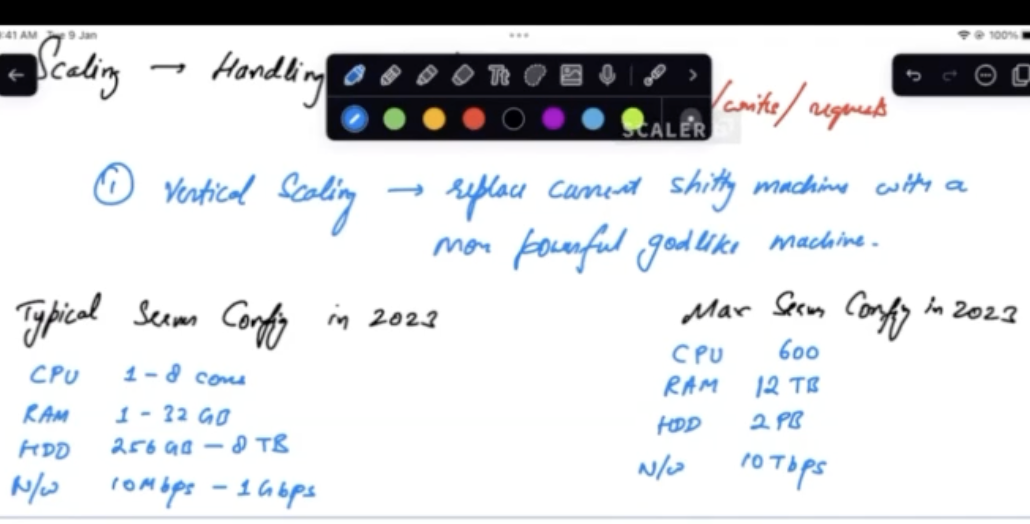 :41 AM Tue 9 Jan
100%
Scaling → Handling
/writes/ requests
SCALER
① Vertical Scaling → replace current shitty machine with a
more powerful godlike machine.
Typical Server Config in 2023
CPU 1 - 8 cores
RAM 1 - 32 GB
HDD 256 GB - 8 TB
N/w 10 Mbps - 1 Gbps
Max Server Config in 2023
CPU 600
RAM 12 TB
HDD 2 PB
N/w 10 Tbps